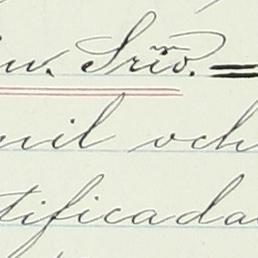 w. Srio. =
mil och
tificada